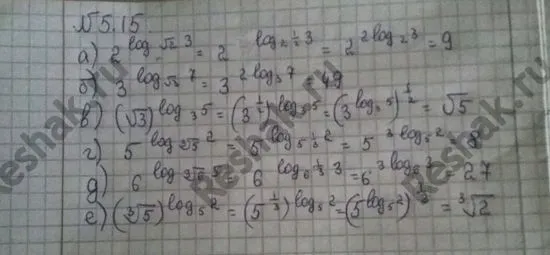 №5.15
а) 2^{log_{√2} 3} = 2^{log_{2^{1/2}} 3} = 2^{2 log_2 3} = 9
б) 3^{log_{√3} 7} = 3^{2 log_3 7} = 49
в) (√3)^{log_3 5} = (3^{1/2})^{log_3 5} = (3^{log_3 5})^{1/2} = √5
г) 5^{log_{∛5} 2} = 5^{log_{5^{1/3}} 2} = 5^{3 log_5 2} = 8
д) 6^{log_{∛6} 3} = 6^{log_{6^{1/3}} 3} = 6^{3 log_6 3} = 27
е) (∛5)^{log_5 2} = (5^{1/3})^{log_5 2} = (5^{log_5 2})^{1/3} = ∛2
Reshak.ru